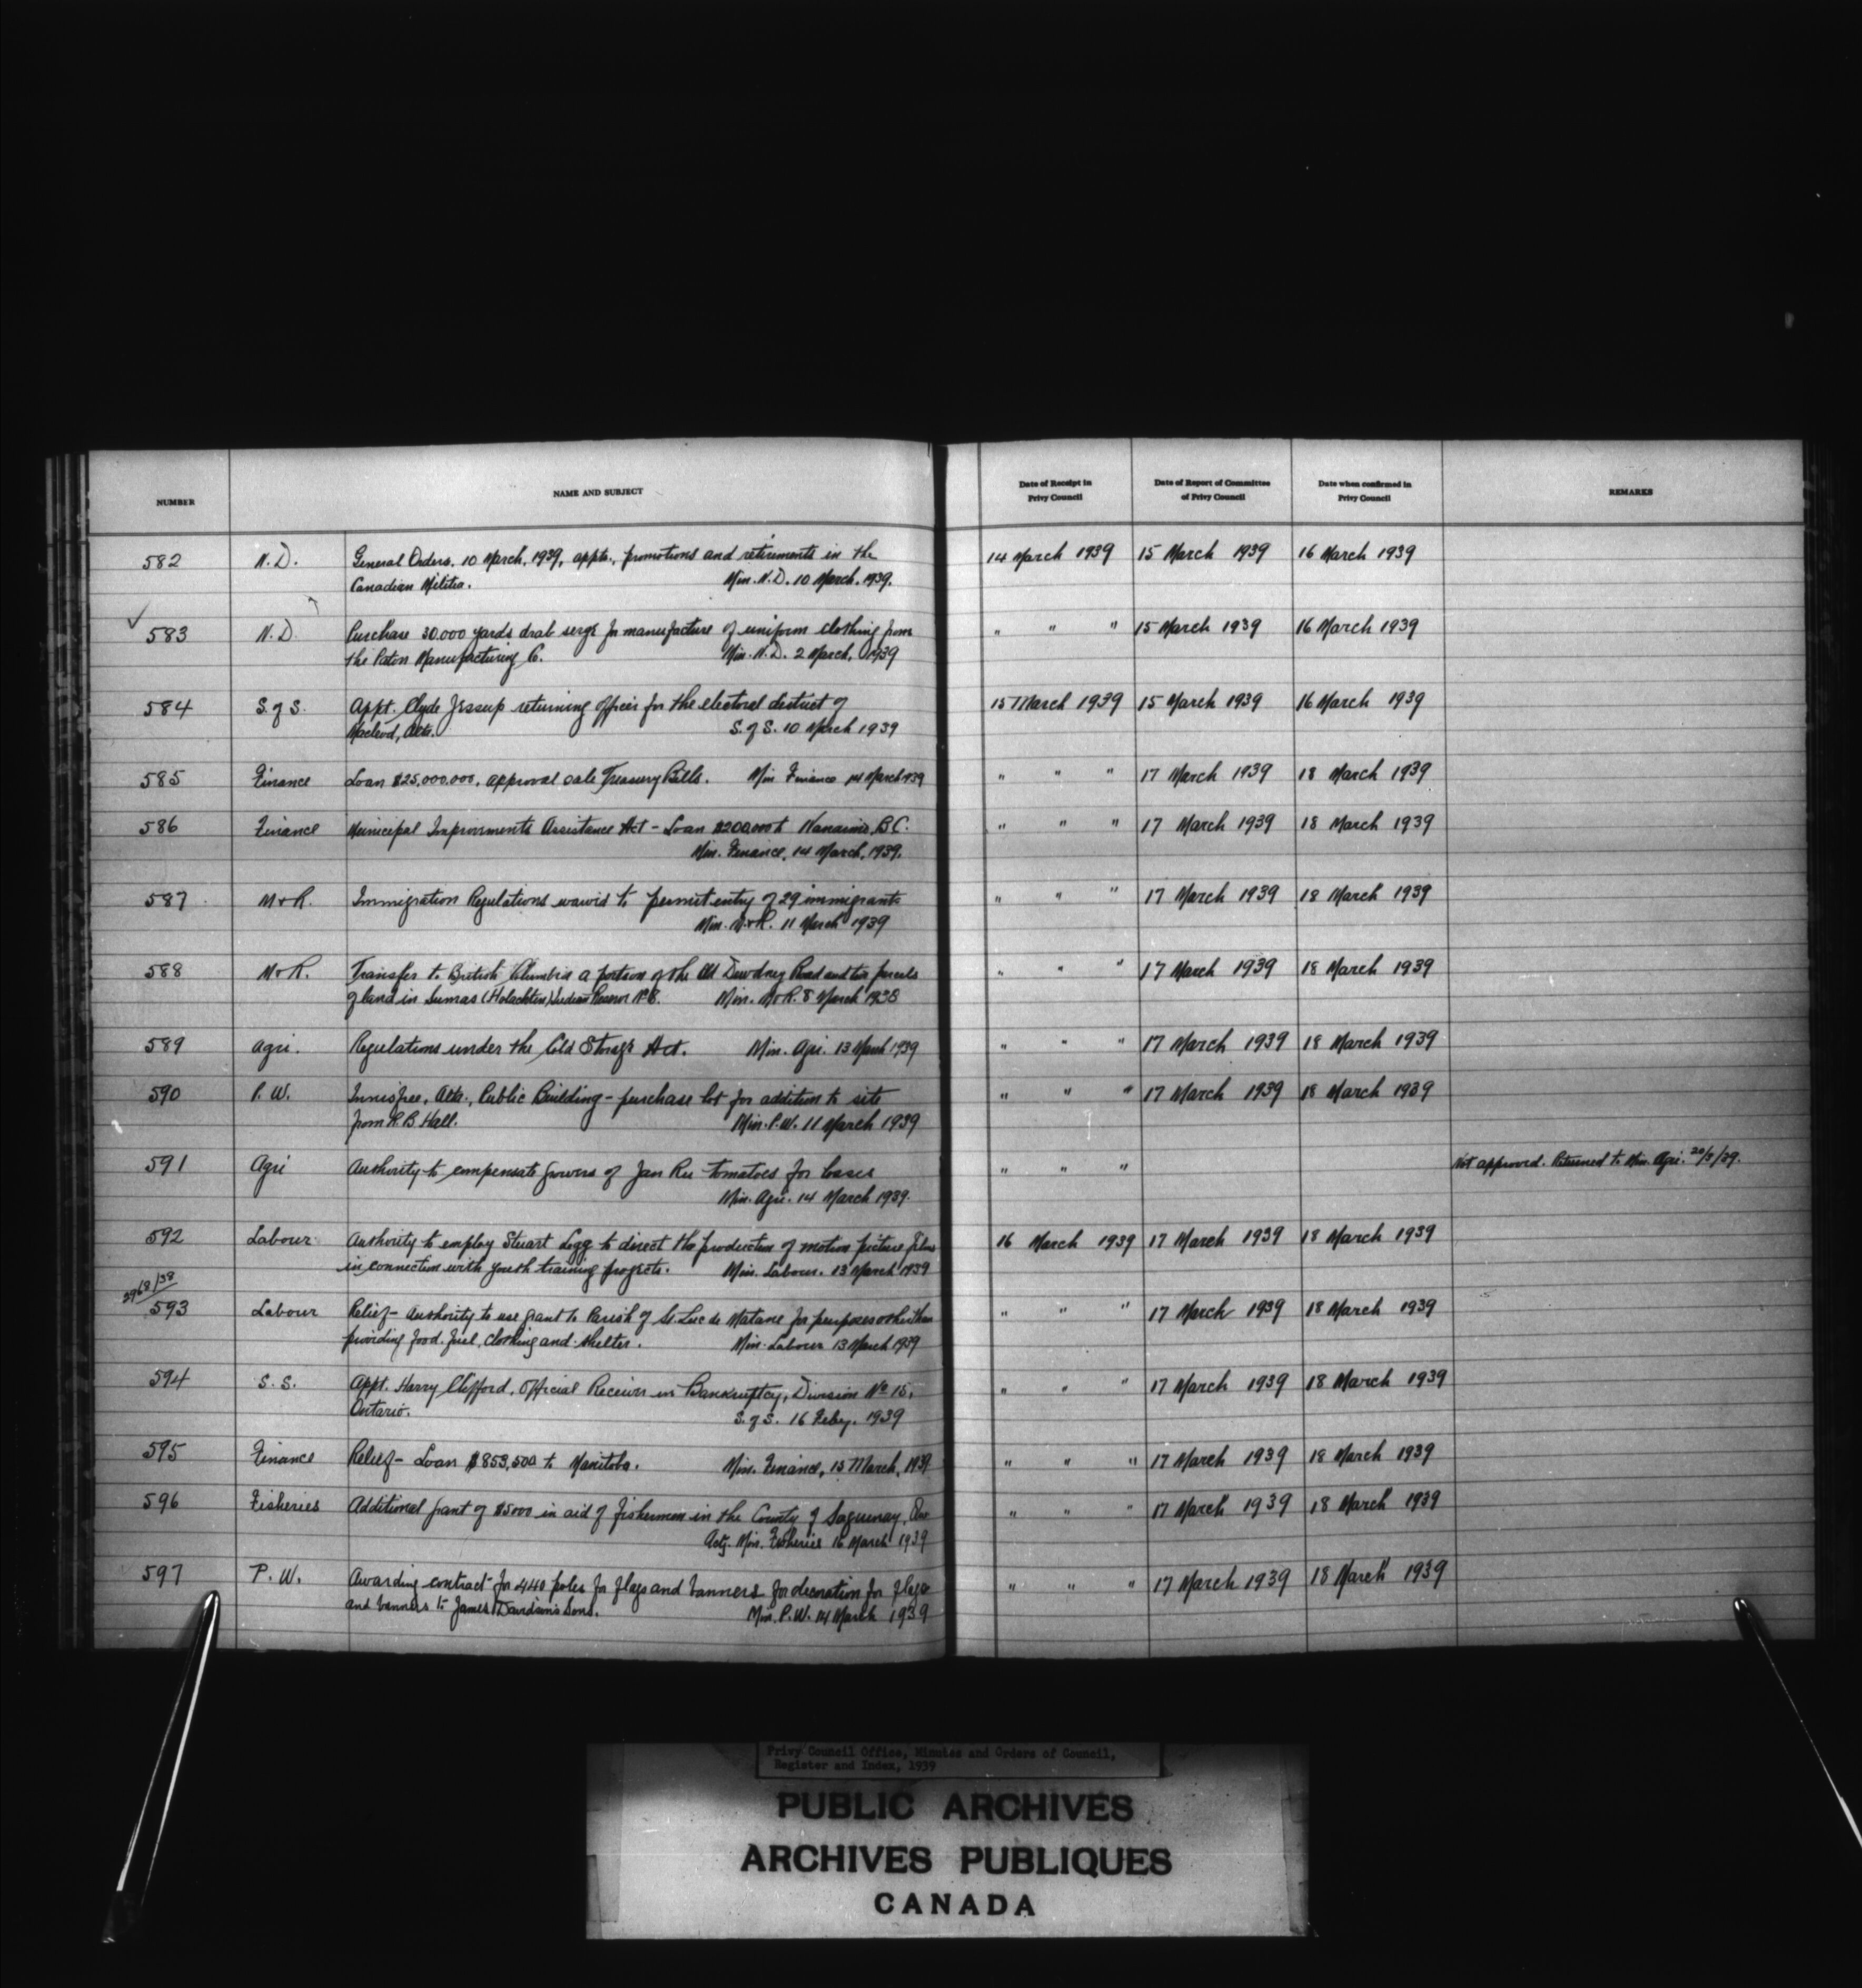 NUMBER NAME AND SUBJECT Date of Receipt in Privy Council Date of Report of Committee of Privy Council Date when confirmed in Privy Council REMARKS
582 N.D. General Orders. 10 March, 1939, appts., promotions and retirements in the 14 March 1939 15 March 1939 16 March 1939
Canadian Militia. Min. N.D. 10 March. 1939.
✓ 583 N.D. Purchase 30.000 yards drab serge for manufacture of uniform clothing from " " " 15 March 1939 16 March 1939
the Paton Manufacturing Co. Min. N.D. 2 March, 1939
584 S. of S. Appt. Clyde Jessup returning officer for the electoral district of 15 March 1939 15 March 1939 16 March 1939
Macleod, Alta. S. of S. 10 March 1939
585 Finance Loan $25,000,000. approval sale Treasury Bills. Min Finance 14 March 1939 " " " 17 March 1939 18 March 1939
586 Finance Municipal Improvments Assistance Act - Loan $200,000 to Nanaimo, B.C. " " " 17 March 1939 18 March 1939
Min. Finance, 14 March, 1939.
587 M & R. Immigration Regulations waived to permit entry of 29 immigrants " " " 17 March 1939 18 March 1939
Min. M & R. 11 March 1939
588 M & R. Transfer to British Columbia a portion of the Old Dewdney Road and two parcels " " " 17 March 1939 18 March 1939
of land in Sumas (Holachten) Indian Reserve No 8. Min. M & R. 8 March 1938
589 Agri. Regulations under the Cold Storage Act. Min. Agri. 13 March 1939 " " " 17 March 1939 18 March 1939
590 P.W. Innisfree, Alta., Public Building - purchase lot for addition to site " " " 17 March 1939 18 March 1939
from R.B. Hall. Min. P.W. 11 March 1939
591 Agri Authority to compensate growers of Jan Ru tomatoes for losses " " " Not approved. Returned to Min. Agri. 20/3/39.
Min. Agri. 14 March 1939.
592 Labour Authority to employ Stuart Legg to direct the production of motion picture films 16 March 1939 17 March 1939 18 March 1939
in connection with youth training projects. Min. Labour. 13 March 1939
593 Labour Relief - Authority to use grant to Parish of St. Luc de Matane for purposes other than " " " 17 March 1939 18 March 1939
providing food, fuel, clothing and shelter. Min. Labour 13 March 1939
594 S.S. Appt. Harry Clifford, Official Receiver in Bankruptcy, Division No 15, " " " 17 March 1939 18 March 1939
Ontario. S. of S. 16 Feby. 1939
595 Finance Relief - Loan $853,500 to Manitoba. Min. Finance, 15 March, 1939 " " " 17 March 1939 18 March 1939
596 Fisheries Additional grant of $5000 in aid of fishermen in the County of Saguenay, Que " " " 17 March 1939 18 March 1939
Actg. Min. Fisheries 16 March 1939
597 P.W. Awarding contract for 440 poles for flags and banners for decoration for flags " " " 17 March 1939 18 March 1939
and banners to James Davidson's Sons. Min. P.W. 14 March 1939
Privy Council Office, Minutes and Orders of Council,
Register and Index, 1939
PUBLIC ARCHIVES
ARCHIVES PUBLIQUES
CANADA